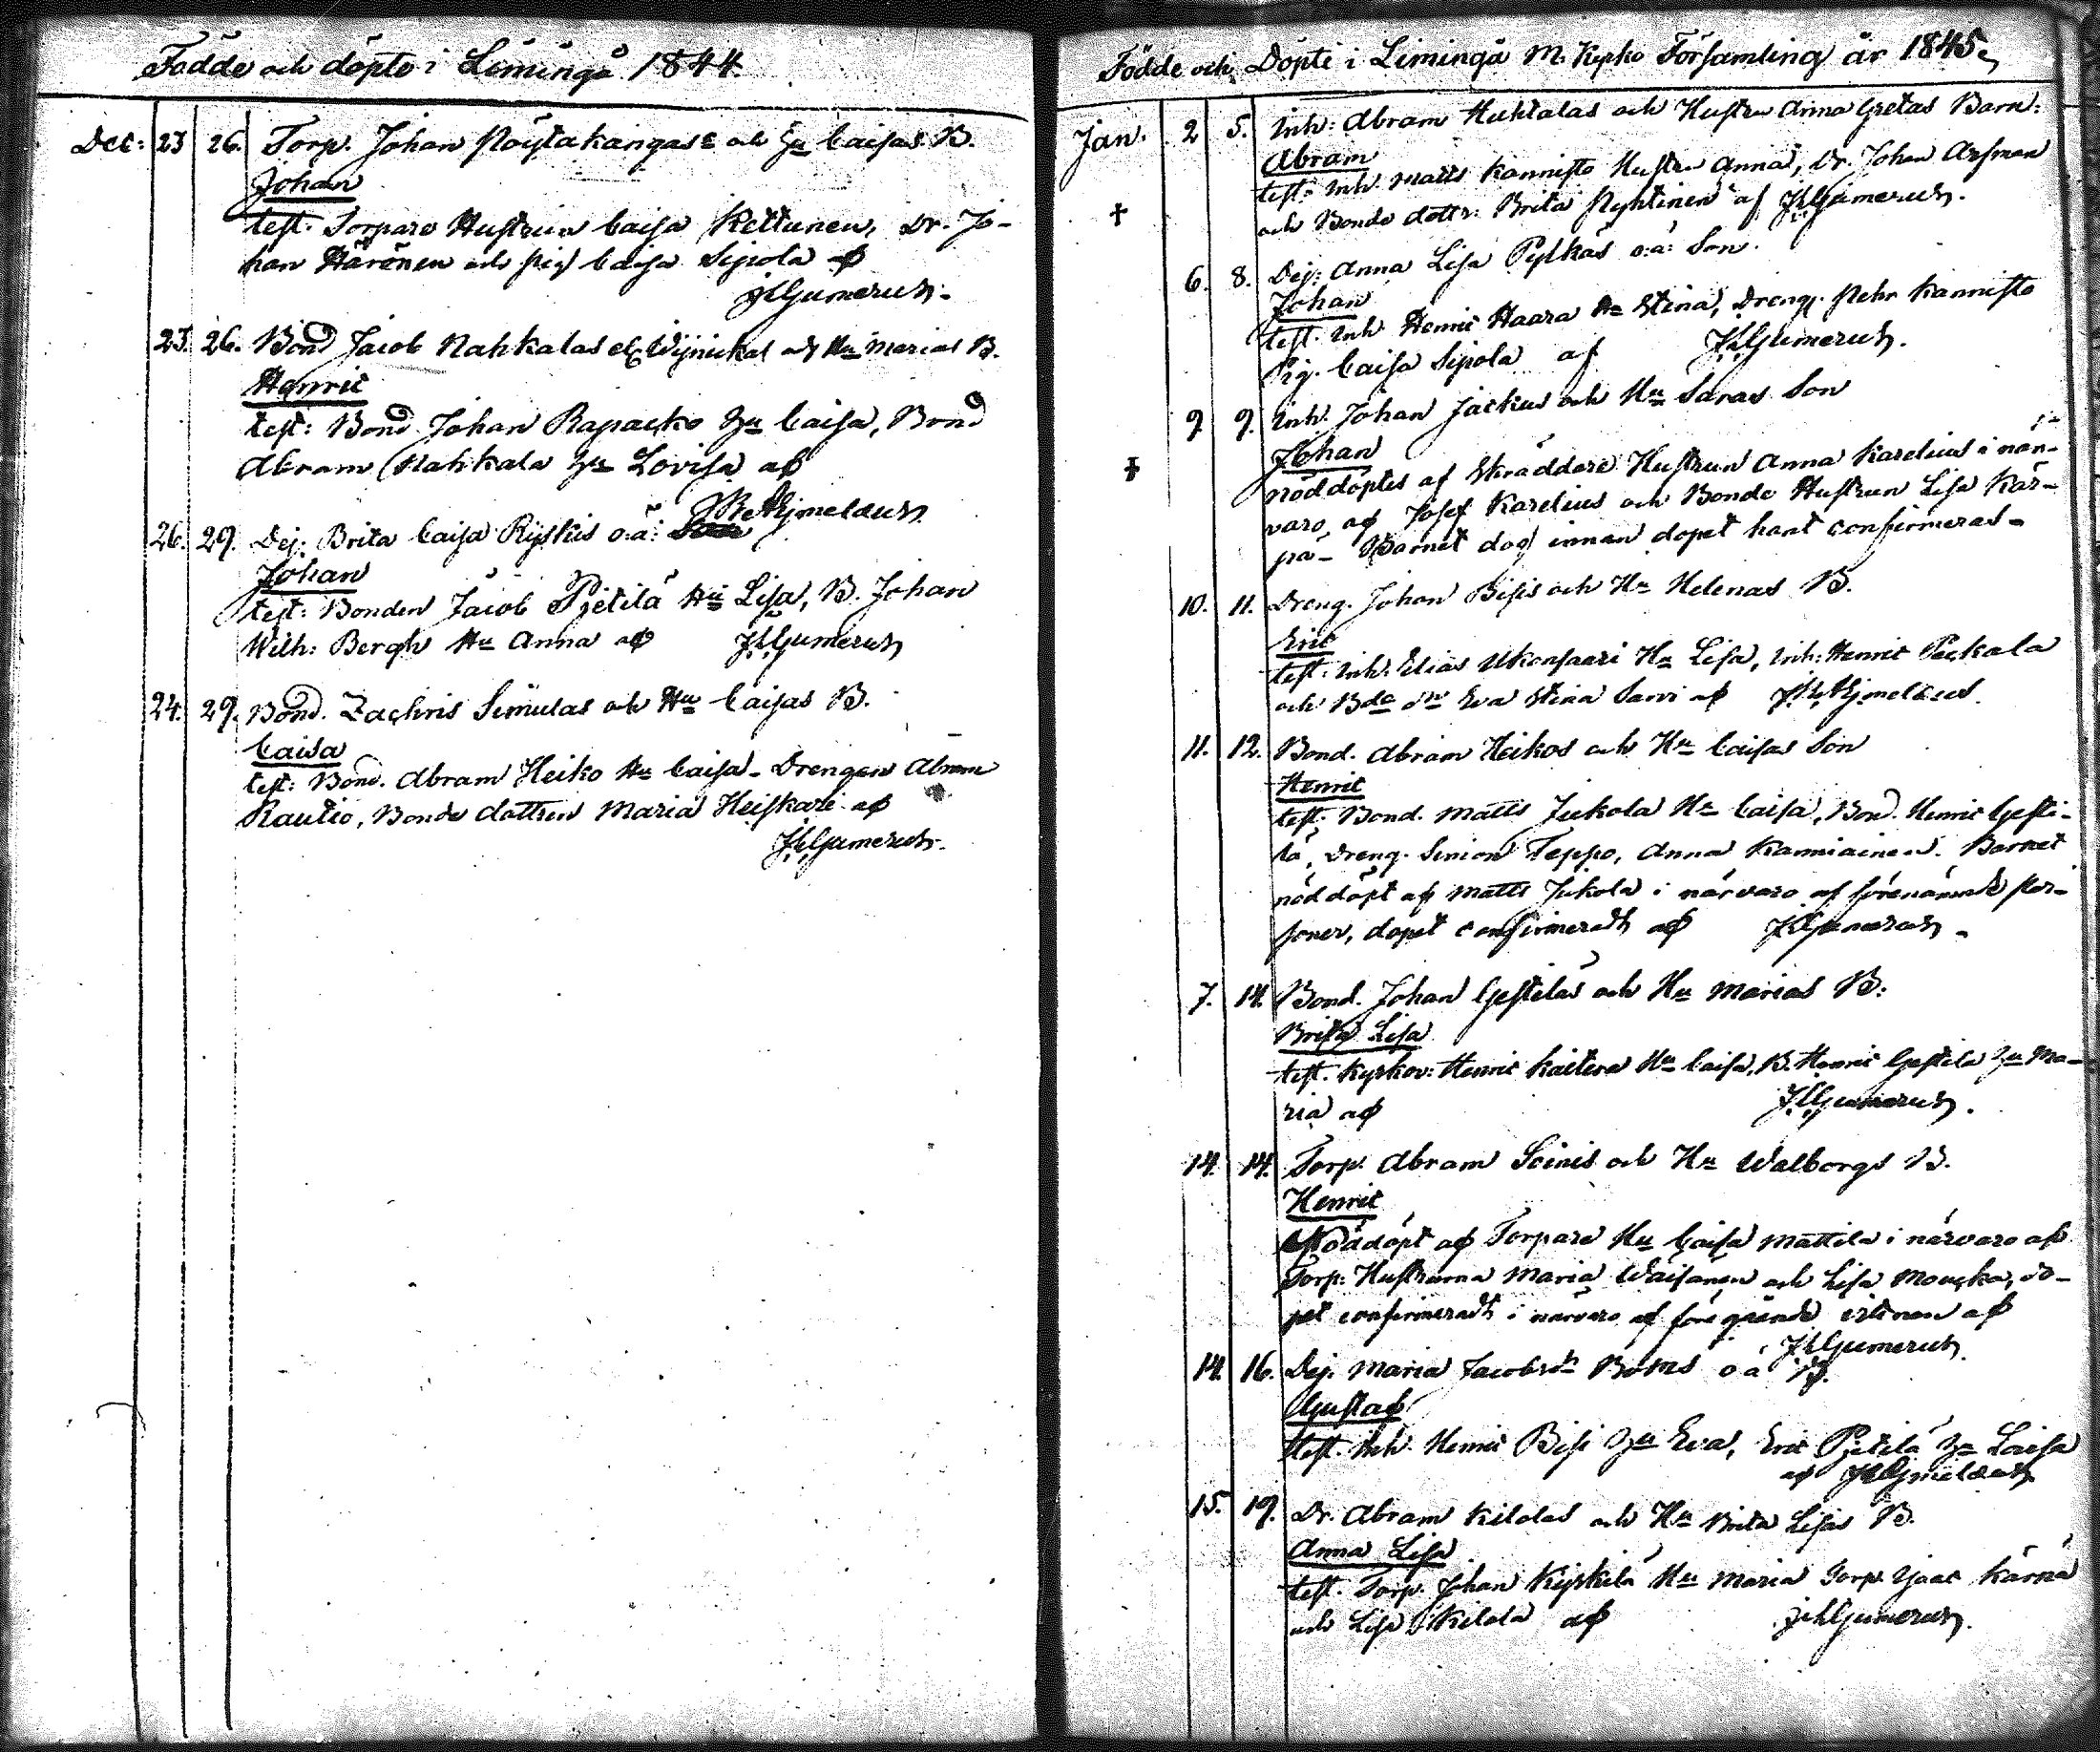 Födde och döpte i Limingå 1844.
Dec: 23 26. Torp. Johan Pöytäkangas och Hu Caisas B.
Johan
test. Torpare Hustrun Caisa Kettunen, Dr. Jo-
han Härönen och pig Caisa Sipola af
JGumerus.
23 26. Bond Jacob Nahkalas och Hu Marias B.
Henric
test: Bond Johan Rapacko Hu Caisa, Bond
Abram Nahkala Hu Lovisa af
26. 29. Dej. Brita Caisa Ryskis o.ä:
Johan
test: Bonden Jacob Pietilä Hu Lisa, B. Johan
Wilh: Bergh Hu Anna af JGumerus
24. 29. Bond. Zachris Simulas och Hu Caisas B.
Caisa
test: Bond. Abram Heiko Hu Caisa - Drengen Abram
Rautio, Bonde dottren Maria Heiskari af
JGumerus.
Födde och Döpte i Limingå M. Kyrko Församling år 1845.
Jan. 2 5. Inh: Abram Huhtalas och Hustru Anna Gretas Barn:
Abram
test: Inh. Matts Kannisto Hustru Anna, Dr. Johan
och Bonde dottr: Brita Pyhtinen af JGumerus.
6. 8. Dej: Anna Lisa Pylkäs o:ä: Son.
Johan
test. Inh. Henric Haara Hu Stina, Dreng. Pehr Kannisto
Pig. Caisa Sipola af JGumerus.
9. 9. Inh. Johan Jackus och Hu Saras Son
Johan
nöddöptes af Skräddare Hustrun Anna Karelius i när-
varo af Josef Karelius och Bonde Hustrun Lisa Kär-
pä - Barnet dog innan dopet hant confirmeras -
10. 11. Dreng. Johan Bisis och Hu Helenas B.
Eric
test: Inh. Elias Ukonsaari Hu Lisa, Inh: Henric Peckala
och Bde dr Eva Stina Sarvi af
11. 12. Bond. Abram Heikos och Hu Caisas Son
Henric
test. Bond. Matts Jukola Hu Caisa, Bond. Henric Gesti-
lä, Dreng. Simon Teppo, Anna Kanniainen. Barnet
nöddöpt af Matts Jukola i närvaro af förenämnde per-
soner, dopet confirmeradt af JGumerus.
7. 14. Bond. Johan Gestiläs och Hu Marias B:
Brita Lisa
test. Kyrkov: Henric Kaitera Hu Caisa, B. Henric Gestilä Hu Ma-
ria af JGumerus.
14. 14. Torp. Abram Soinis och Hu Walborgs B.
Henric
Nöddöpt af Torpare Hu Caisa Mattila i närvaro af
Torp: Hustrurna Maria Wäisänen och Lisa Moucka, do-
pet confirmeradt i närvaro af föregående vittnen af
JGumerus.
14. 16. Dej. Maria Jacobsdr o ä B.
Gustaf
test. Inh. Henric Bisi Hu Eva, Eric Pietilä Hu Caisa
af
15. 19. Dr. Abram Kilolas och Hu Brita Lisas B.
Anna Lisa
test. Torp. Johan Kyrkilä Hu Maria Torp. Isaac Kärnä
och Lisa Kilola af JGumerus.